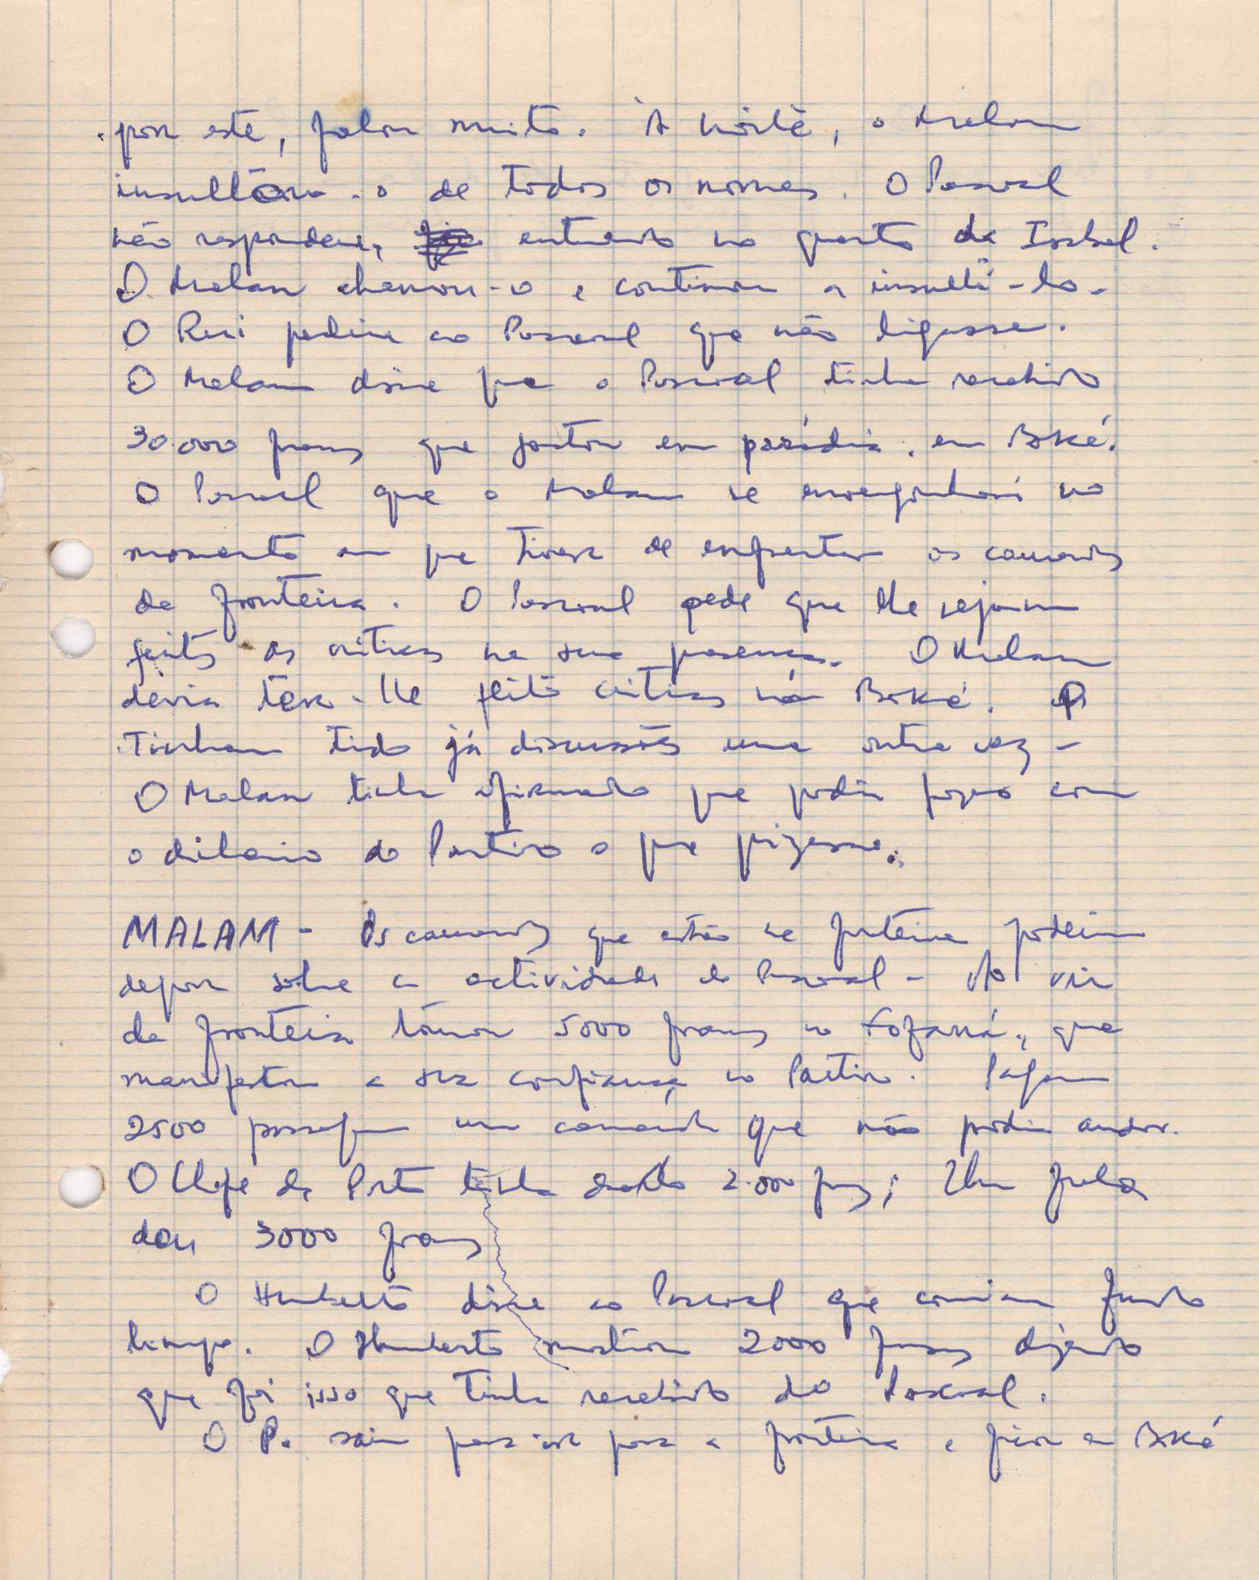 por este, falou muito. À noite, o Malam
insultára-o de todos os nomes. O Pascoal
não respondera, entrando no quarto da Isabel.
O Malam chamou-o e continuou a insultá-lo.
O Rui pedira ao Pascoal que não ligasse.
O Malam disse que o Pascoal tinha recebido
30.000 francos que gastou em paródia, em Boké.
O Pascoal que o Malam se envergonhará no
momento em que tiver de enfrentar os camaradas
da fronteira. O Pascoal pede que lhe sejam
feitas as críticas na sua presença. O Malam
devia ter-lhe feito críticas lá Boké.
Tinham tido já discussões uma outra vez -
O Malam tinha afirmado que podia fazer com
o dinheiro do Partido o que quizesse.
MALAM - Os camaradas que estão na fronteira podem
depor sobre a actividade do Pascoal - Ao vir
da fronteira tomou 5000 francos ao Fofaná, que
manifestou a sua confiança no Partido. Pagou
2500 passagem um camarada que não podia andar.
O Chefe de Posto tinha dado 2.000 frs; Um fula
deu 3000 francos
O Humberto disse ao Pascoal que comiam
tempo. O Humberto mostrou 2000 francos dizendo
que foi isso que tinha recebido do Pascoal.
O P. saiu para ir para a fronteira e ficou em Boké